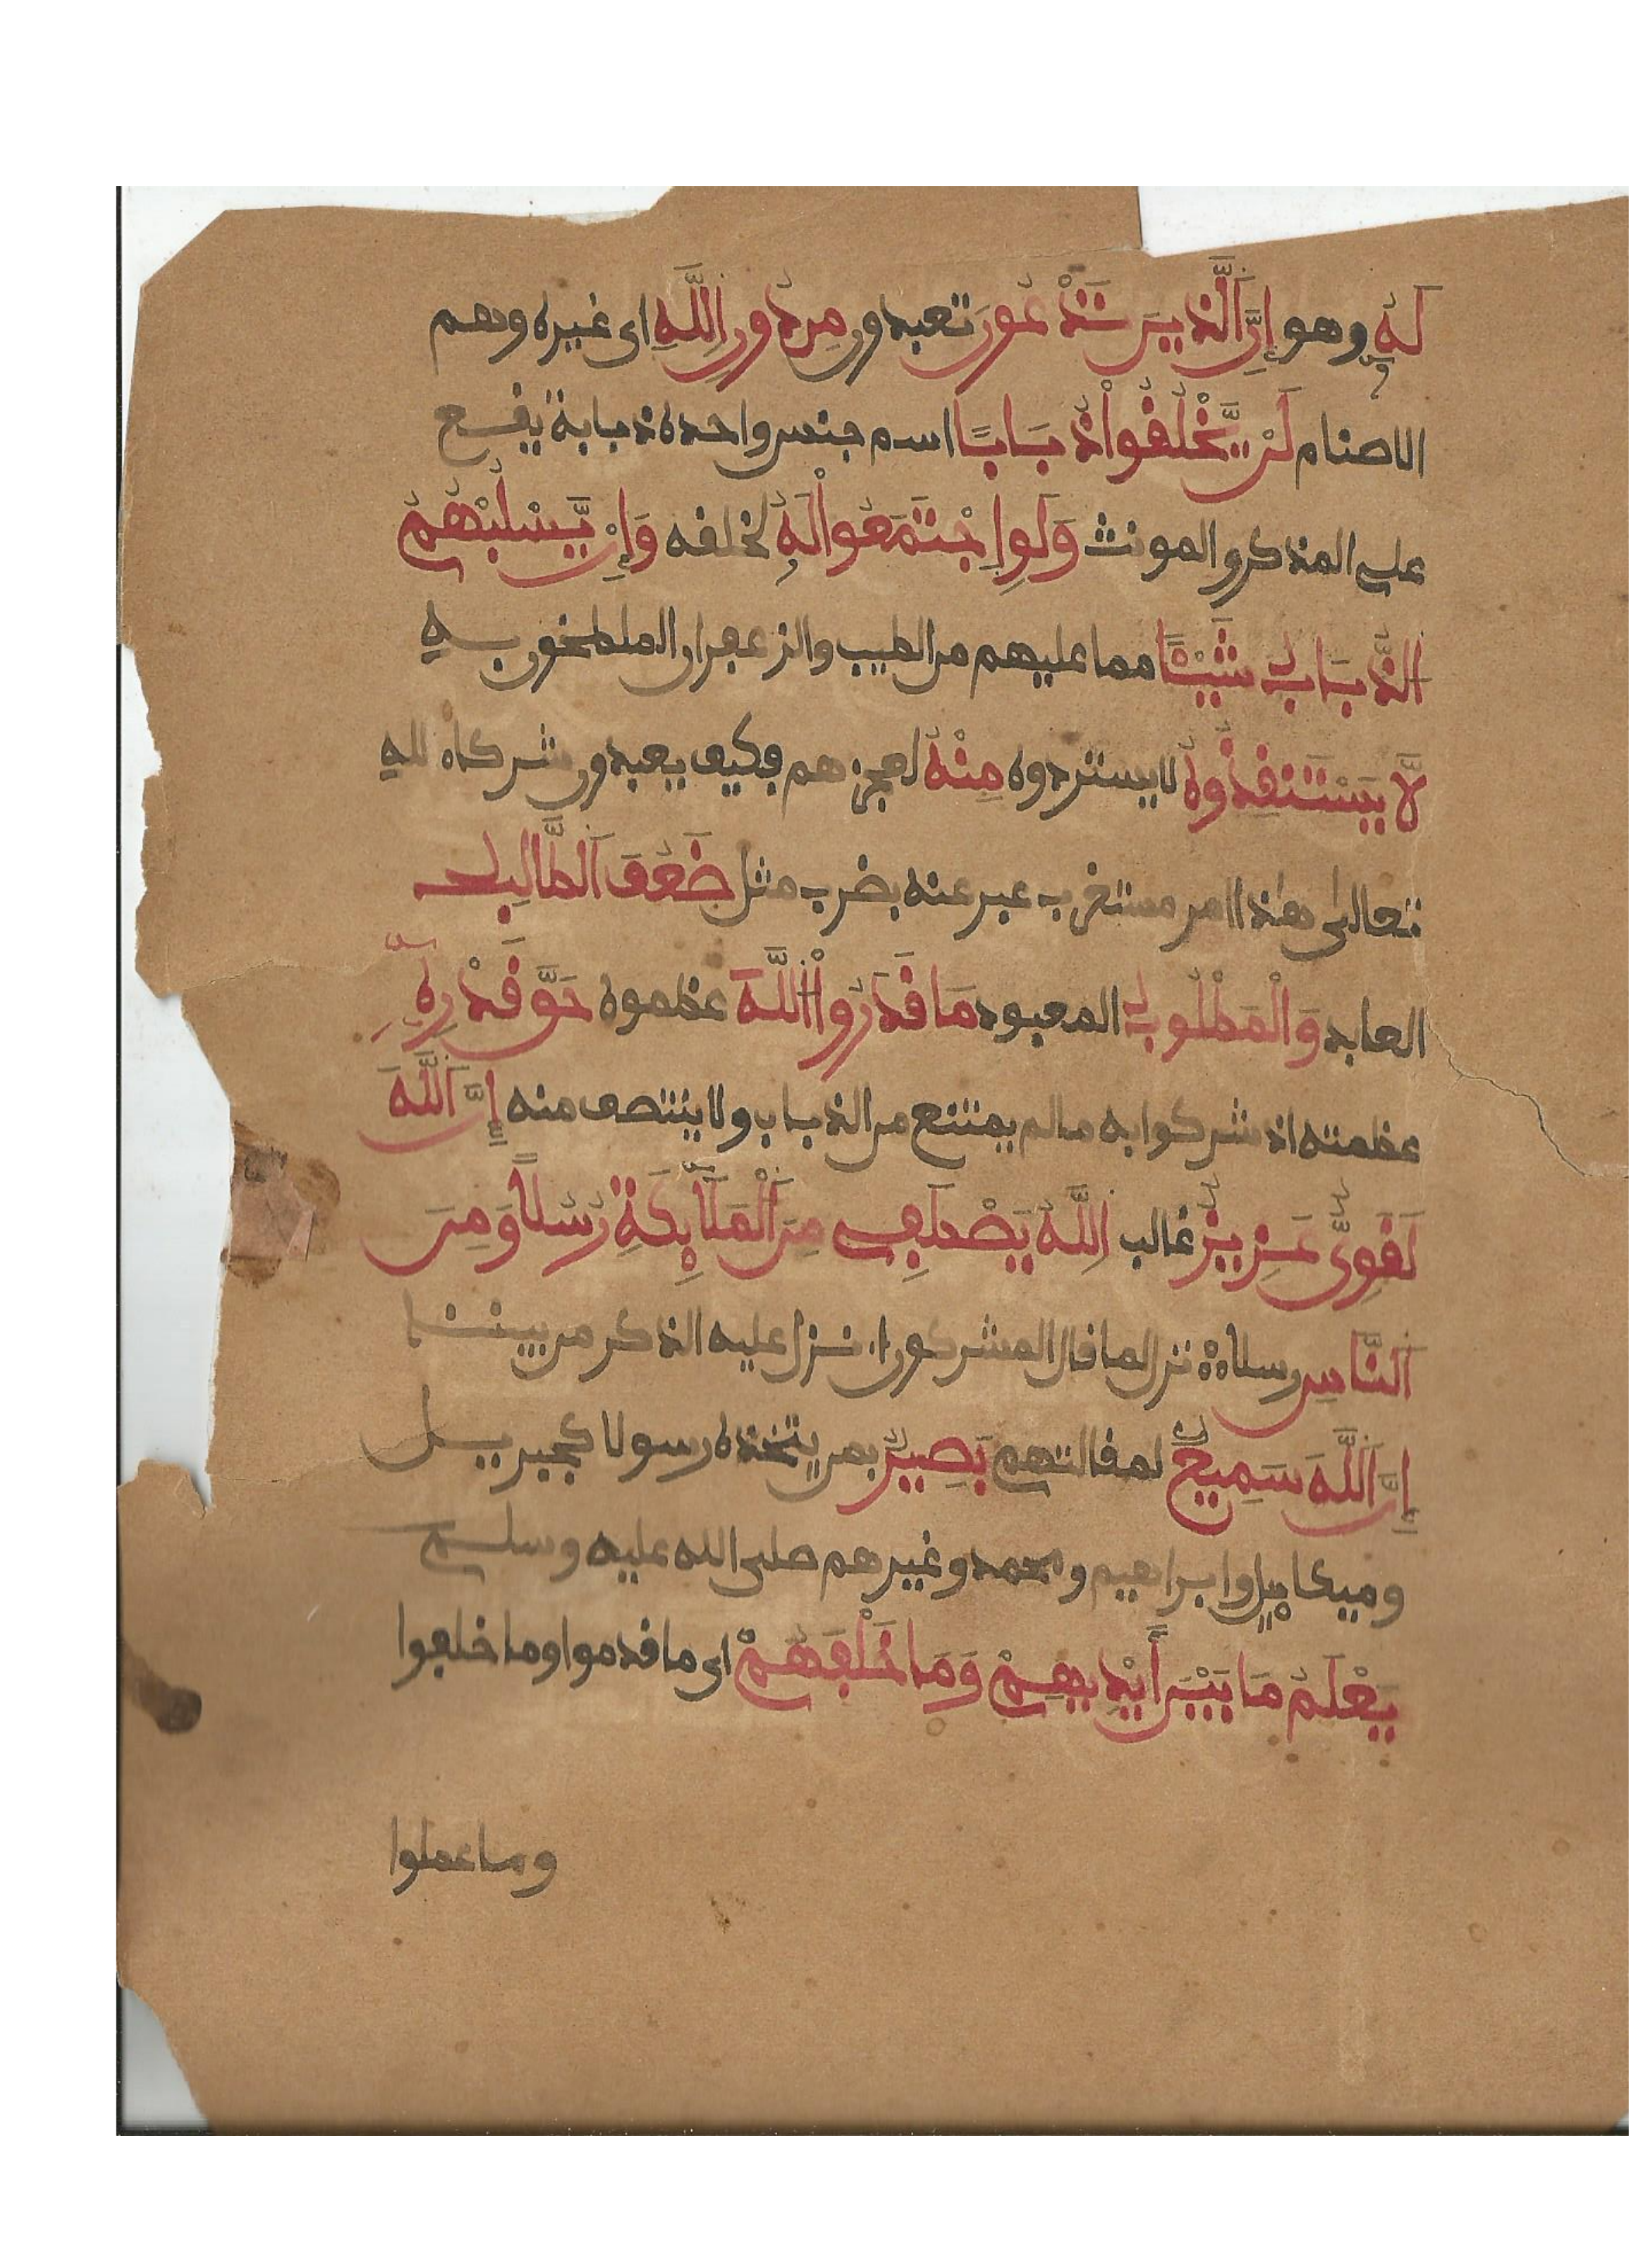 لَهُ وهو إِنَّ ٱلَّذِينَ تَدْعُونَ تعبدون مِن دُونِ اِللَّهِ اى غيره وهم
الاصنام لَنْ يَّخْلُقُواْ ذُبَابًا اسم جنس واحده ذبابة يقع
على المذكر والمونث وَلَوِ اِجْتَمَعُواْ لَهُ لخلقه وَإِنْ يَّسْلُبْهُمُ
الذُّبَابُ شَيْـًٔا مما عليهم من الطيب والزعفران الملطخون به
لَّا يَسْتَنقِذُوهُ لا يستردوه مِنْهُ لعجزهم فكيف يعبدون شركاء لله
تعالى هذا امر مستغرب عبر عنه بضرب مثل ضَعُفَ اَلطَّالِبُ
العابد وَالْمَطْلُوبُ المعبود مَا قَدَرُواْ اُللَّهَ عظموه حَقَّ قَدْرِهِۦٓ
عظمته اذ شركوا به ما لم يمتنع من الذباب ولا ينتصف منه إِنَّ اَللَّهَ
لَقَوِىٌّ عَزِيزٌ غالب اِللَّهُ يَصْطَفِى مِنَ اَلْمَلَٰٓئِكَةِ رُسُلًا وَمِنَ
اَلنَّاسِ رسلاه نزل لما قال المشركون اءنزل عليه الذكر من بيننا
إِنَّ اَللَّهَ سَمِيعٌ لمقالتهم بَصِيرٌ بمن يتخذه رسولا كجبريل
وميكاييل وابراهيم ومحمد وغيرهم صلى الله عليه وسلم
يَعْلَمُ مَا بَيْنَ أَيْدِيهِمْ وَمَا خَلْفَهُمْ اى ما قدموا وما خلفوا
وما عملوا